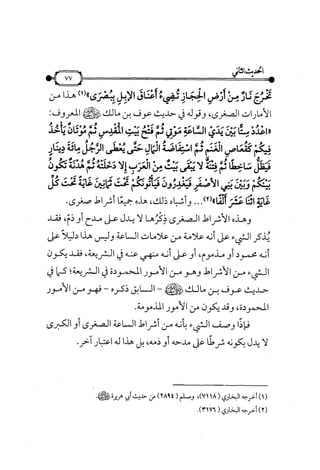 الحديث الثاني
٧٧
تَخْرُجَ نَارٌ مِنْ أَرْضِ الْحِجَازِ تُضِيءُ أَعْنَاقَ الإِبِلِ بِبُصْرَى»(١) هذا من
الأمارات الصغرى، وقوله في حديث عوف بن مالك ﷺ المعروف:
«اعْدُدْ سِتًّا بَيْنَ يَدَيِ السَّاعَةِ مَوْتِي ثُمَّ فَتْحُ بَيْتِ الْمَقْدِسِ ثُمَّ مُوْتَانٌ يَأْخُذُ
فِيكُمْ كَقُعَاصِ الْغَنَمِ ثُمَّ اسْتِفَاضَةُ الْمَالِ حَتَّى يُعْطَى الرَّجُلُ مِائَةَ دِينَارٍ
فَيَظَلُّ سَاخِطًا ثُمَّ فِتْنَةٌ لا يَبْقَى بَيْتٌ مِنَ الْعَرَبِ إِلا دَخَلَتْهُ ثُمَّ هُدْنَةٌ تَكُونُ
بَيْنَكُمْ وَبَيْنَ بَنِي الأَصْفَرِ فَيَغْدِرُونَ فَيَأْتُونَكُمْ تَحْتَ ثَمَانِينَ غَايَةً تَحْتَ كُلِّ
غَايَةٍ اثْنَا عَشَرَ أَلْفًا»(٢)... وأشباه ذلك، هذه جميعًا أشراط صغرى.
وهذه الأشراط الصغرى ذِكْرُها لا يدل على مدح أو ذم، فقد
يُذكر الشيء على أنه علامة من علامات الساعة وليس هذا دليلاً على
أنه محمود أو مذموم، أو على أنه منهي عنه في الشريعة، فقد يكون
الشيء من الأشراط وهو من الأمور المحمودة في الشريعة؛ كما في
حديث عوف بن مالك ﷺ - السابق ذكره - فهو من الأمور
المحمودة، وقد يكون من الأمور المذمومة.
فإذًا وصف الشيء بأنه من أشراط الساعة الصغرى أو الكبرى
لا يدل بكونه شرطًا على مدحه أو ذمه، بل هذا له اعتبار آخر.
(١) أخرجه البخاري (٧١١٨)، ومسلم (٢٨٩٤) من حديث أبي هريرة ﷺ.
(٢) أخرجه البخاري (٣١٧٦).